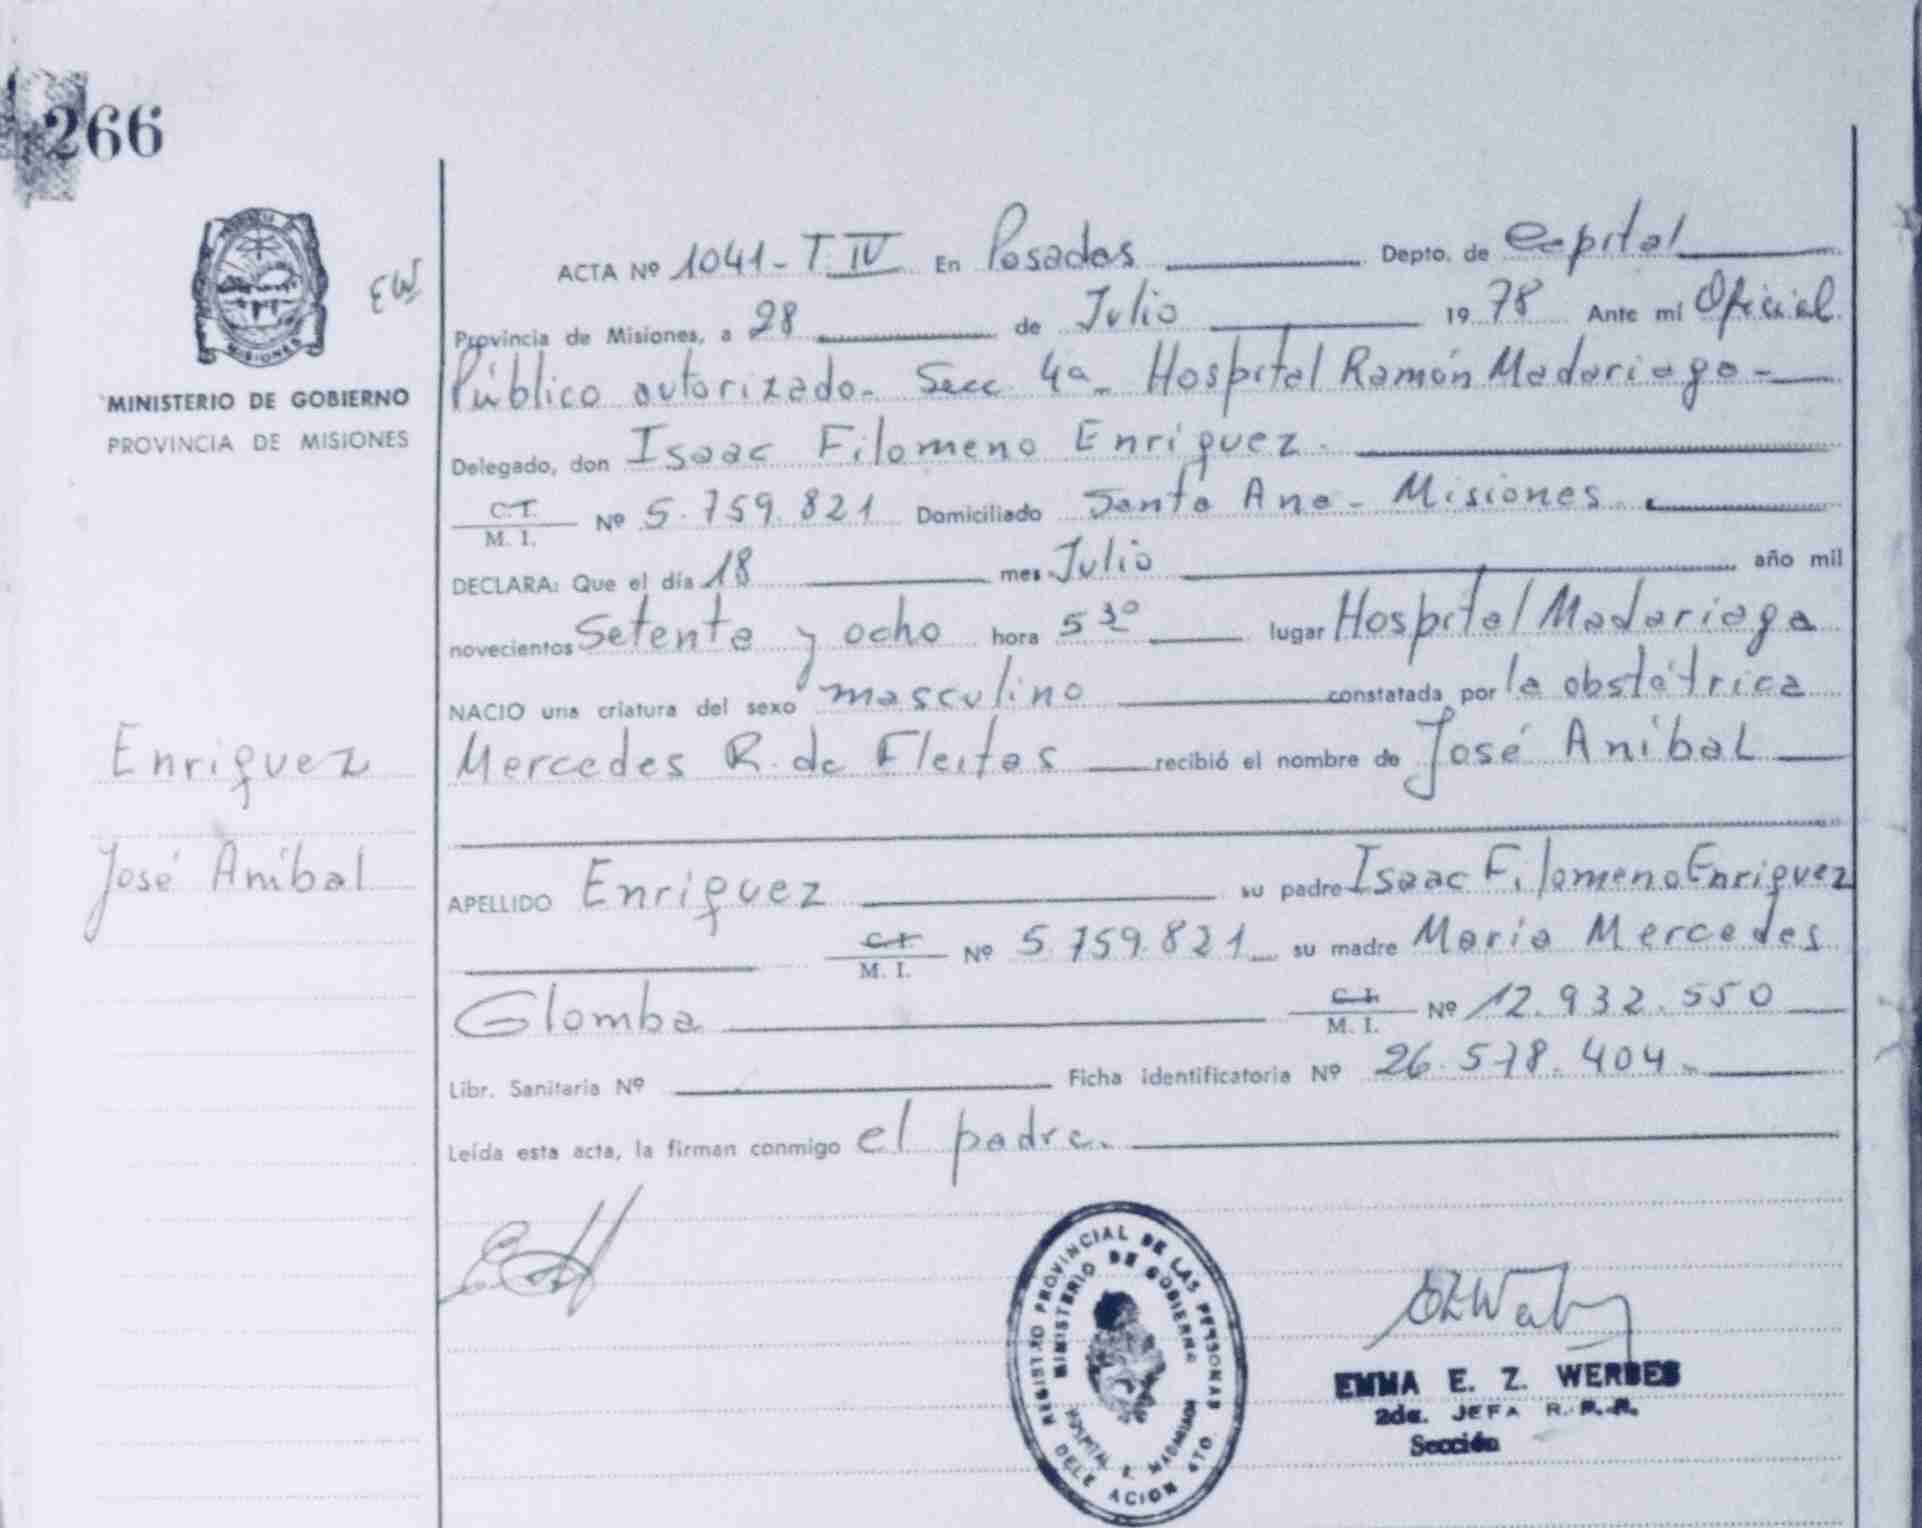 266
MISIONES
EW
MINISTERIO DE GOBIERNO
PROVINCIA DE MISIONES
Enriquez
José Aníbal
ACTA Nº 1041 - T IV En Posadas Depto. de Capital
Provincia de Misiones, a 28 de Julio 19 78 Ante mi Oficial
Público autorizado - Secc 4a - Hospital Ramón Madariaga -
Delegado, don Isaac Filomeno Enriquez.
C.I. M. I. Nº 5.759.821 Domiciliado Santa Ana - Misiones.
DECLARA: Que el día 18 mes Julio año mil
novecientos Setenta y ocho hora 5 30 lugar Hospital Madariaga
NACIO una criatura del sexo masculino constatada por la obstétrica
Mercedes R. de Fleitas recibió el nombre de José Aníbal
APELLIDO Enriquez su padre Isaac Filomeno Enriquez
C.I. M. I. Nº 5.759.821 su madre Maria Mercedes
Glomba C.I. M. I. Nº 12.932.550
Libr. Sanitaria Nº Ficha identificatoria Nº 26.578.404
Leída esta acta, la firman conmigo el padre.
REGISTRO PROVINCIAL DE LAS PERSONAS
MINISTERIO DE GOBIERNO
HOSPITAL R. MADARIAGA
DELEGACION 4TO.
EMMA E. Z. WERBES
2da. JEFA R. P. P.
Sección